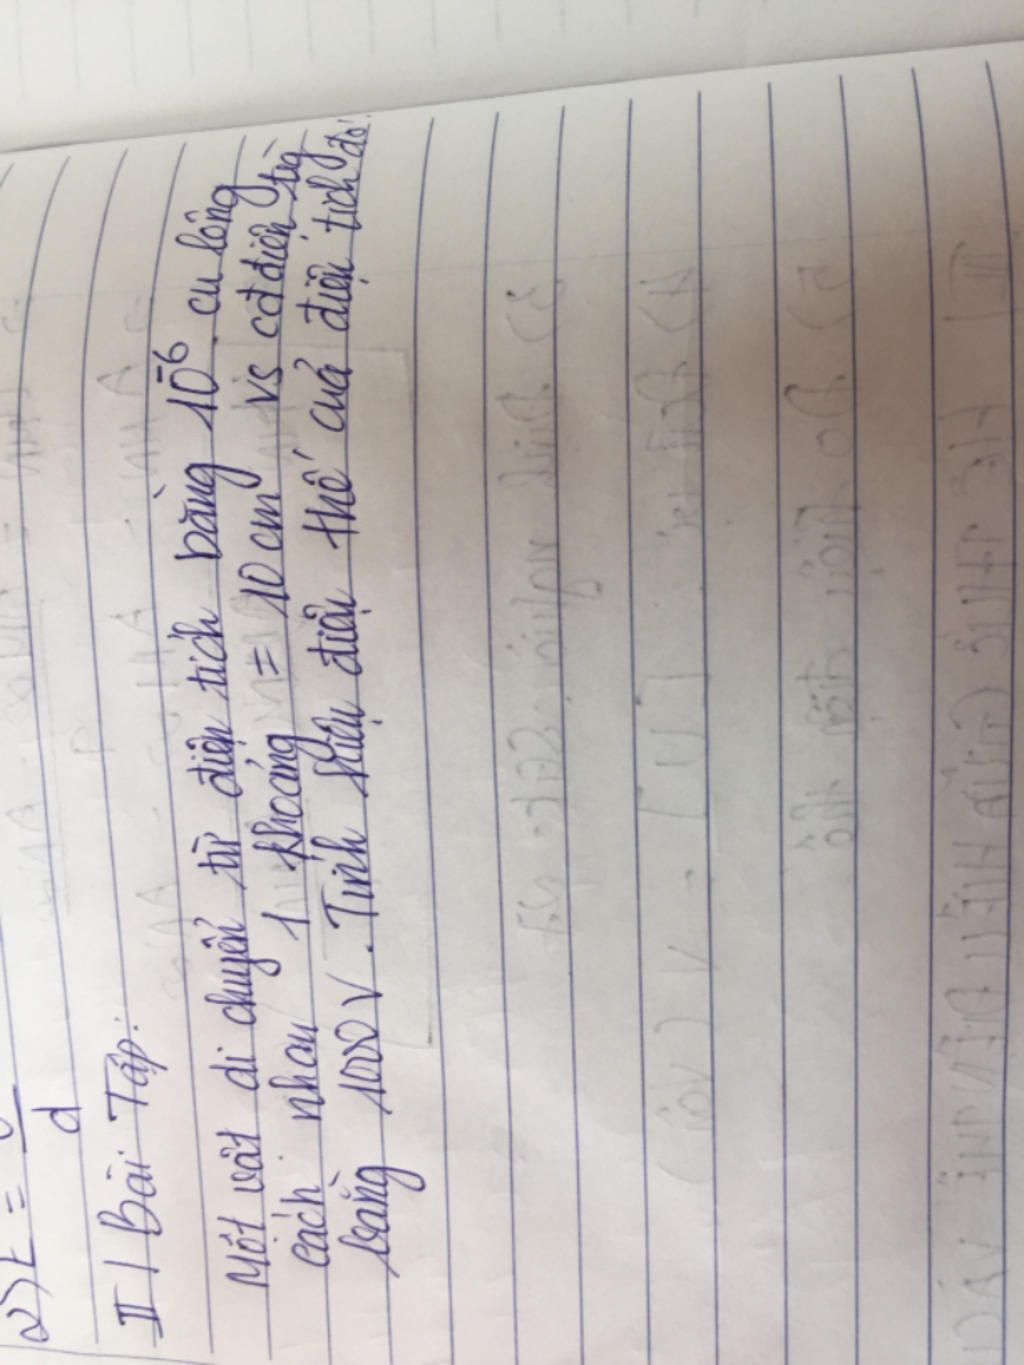 2) E = U
d
II / Bài Tập:
Một vật di chuyển từ điện tích bằng 10⁻⁶. cu lông
cách nhau 1 khoảng = 10 cm vs cđ điện trg
bằng 1000 V. Tính hiệu điện thế của điện tích đó.